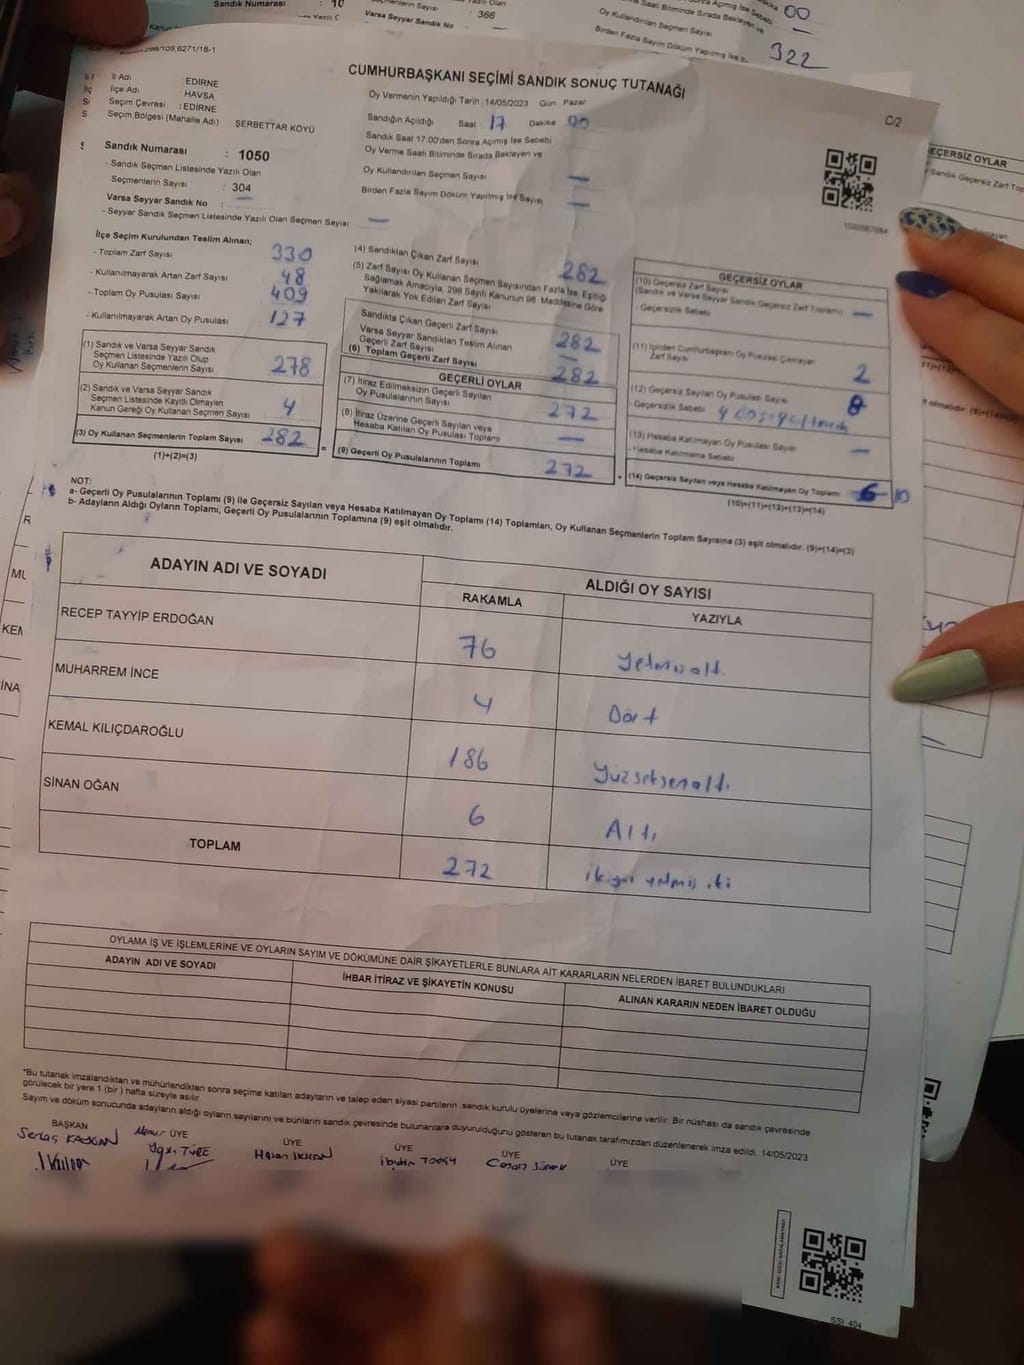 Sandık Numarası : 10
Seçmenlerin Sayısı : 366
Varsa Seyyar Sandık No
Oy Kullandırılan Seçmen Sayısı
00
322
CUMHURBAŞKANI SEÇİMİ SANDIK SONUÇ TUTANAĞI
C/2
İl Adı : EDİRNE
İlçe Adı : HAVSA
Seçim Çevresi : EDİRNE
Seçim Bölgesi (Mahalle Adı) ŞERBETTAR KÖYÜ
Oy Vermenin Yapıldığı Tarih :14/05/2023 Gün : Pazar
Sandığın Açıldığı Saat 17 Dakika 00
Sandık Saat 17:00'den Sonra Açılmış İse Sebebi
Oy Verme Saati Bitiminde Sırada Bekleyen ve
Oy Kullandırılan Seçmen Sayısı —
Birden Fazla Sayım Döküm Yapılmış İse Sayısı —
Sandık Numarası : 1050
- Sandık Seçmen Listesinde Yazılı Olan
Seçmenlerin Sayısı : 304
Varsa Seyyar Sandık No : —
- Seyyar Sandık Seçmen Listesinde Yazılı Olan Seçmen Sayısı —
İlçe Seçim Kurulundan Teslim Alınan;
- Toplam Zarf Sayısı 330
- Kullanılmayarak Artan Zarf Sayısı 48
- Toplam Oy Pusulası Sayısı 409
- Kullanılmayarak Artan Oy Pusulası 127
(1) Sandık ve Varsa Seyyar Sandık
Seçmen Listesinde Yazılı Olup
Oy Kullanan Seçmenlerin Sayısı 278
(2) Sandık ve Varsa Seyyar Sandık
Seçmen Listesinde Kayıtlı Olmayan
Kanun Gereği Oy Kullanan Seçmen Sayısı 4
(3) Oy Kullanan Seçmenlerin Toplam Sayısı 282
(1)+(2)=(3)
(4) Sandıktan Çıkan Zarf Sayısı 282
(5) Zarf Sayısı Oy Kullanan Seçmen Sayısından Fazla İse, Eşitliği
Sağlamak Amacıyla, 298 Sayılı Kanunun 98. Maddesine Göre
Yakılarak Yok Edilen Zarf Sayısı
Sandıkta Çıkan Geçerli Zarf Sayısı 282
Varsa Seyyar Sandıktan Teslim Alınan
Geçerli Zarf Sayısı —
(6) Toplam Geçerli Zarf Sayısı 282
GEÇERLİ OYLAR
(7) İtiraz Edilmeksizin Geçerli Sayılan
Oy Pusulasının Sayısı 272
(8) İtiraz Üzerine Geçerli Sayılan veya
Hesaba Katılan Oy Pusulası Toplamı —
(9) Geçerli Oy Pusulalarının Toplamı 272
GEÇERSİZ OYLAR
(10) Geçersiz Zarf Sayısı
(Sandık ve Varsa Seyyar Sandık Geçersiz Zarf Toplamı) —
- Geçersizlik Sebebi
(11) İçinden Cumhurbaşkanı Oy Pusulası Çıkmayan
Zarf Sayısı 2
(12) Geçersiz Sayılan Oy Pusulası Sayısı 8
Geçersizlik Sebebi
(13) Hesaba Katılmayan Oy Pusulası Sayısı —
- Hesaba Katılmama Sebebi
(14) Geçersiz Sayılan veya Hesaba Katılmayan Oy Toplamı 10
(10)+(11)+(12)+(13)=(14)
NOT:
a- Geçerli Oy Pusulalarının Toplamı (9) ile Geçersiz Sayılan veya Hesaba Katılmayan Oy Toplamı (14) Toplamları, Oy Kullanan Seçmenlerin Toplam Sayısına (3) eşit olmalıdır. (9)+(14)=(3)
b- Adayların Aldığı Oyların Toplamı, Geçerli Oy Pusulalarının Toplamına (9) eşit olmalıdır.
ADAYIN ADI VE SOYADI
ALDIĞI OY SAYISI
RAKAMLA YAZIYLA
RECEP TAYYİP ERDOĞAN 76 Yetmişaltı
MUHARREM İNCE 4 Dört
KEMAL KILIÇDAROĞLU 186 Yüzseksenaltı
SİNAN OĞAN 6 Altı
TOPLAM 272 ikiyüz yetmiş iki
OYLAMA İŞ VE İŞLEMLERİNE VE OYLARIN SAYIM VE DÖKÜMÜNE DAİR ŞİKAYETLERLE BUNLARA AİT KARARLARIN NELERDEN İBARET BULUNDUKLARI
ADAYIN ADI VE SOYADI
İHBAR İTİRAZ VE ŞİKAYETİN KONUSU
ALINAN KARARIN NEDEN İBARET OLDUĞU
*Bu tutanak imzalandıktan ve mühürlendikten sonra seçime katılan adayların ve talep eden siyasi partilerin sandık kurulu üyelerine veya gözlemcilerine verilir. Bir nüshası da sandık çevresinde
görülecek bir yere 1 (bir ) hafta süreyle asılır.
Sayım ve döküm sonucunda adayların aldığı oyların sayılarını ve bunların sandık çevresinde bulunanlara duyurulduğunu gösteren bu tutanak tarafımızdan düzenlenerek imza edildi. 14/05/2023
BAŞKAN
Memur ÜYE
ÜYE
ÜYE
ÜYE
ÜYE
SSİ 404